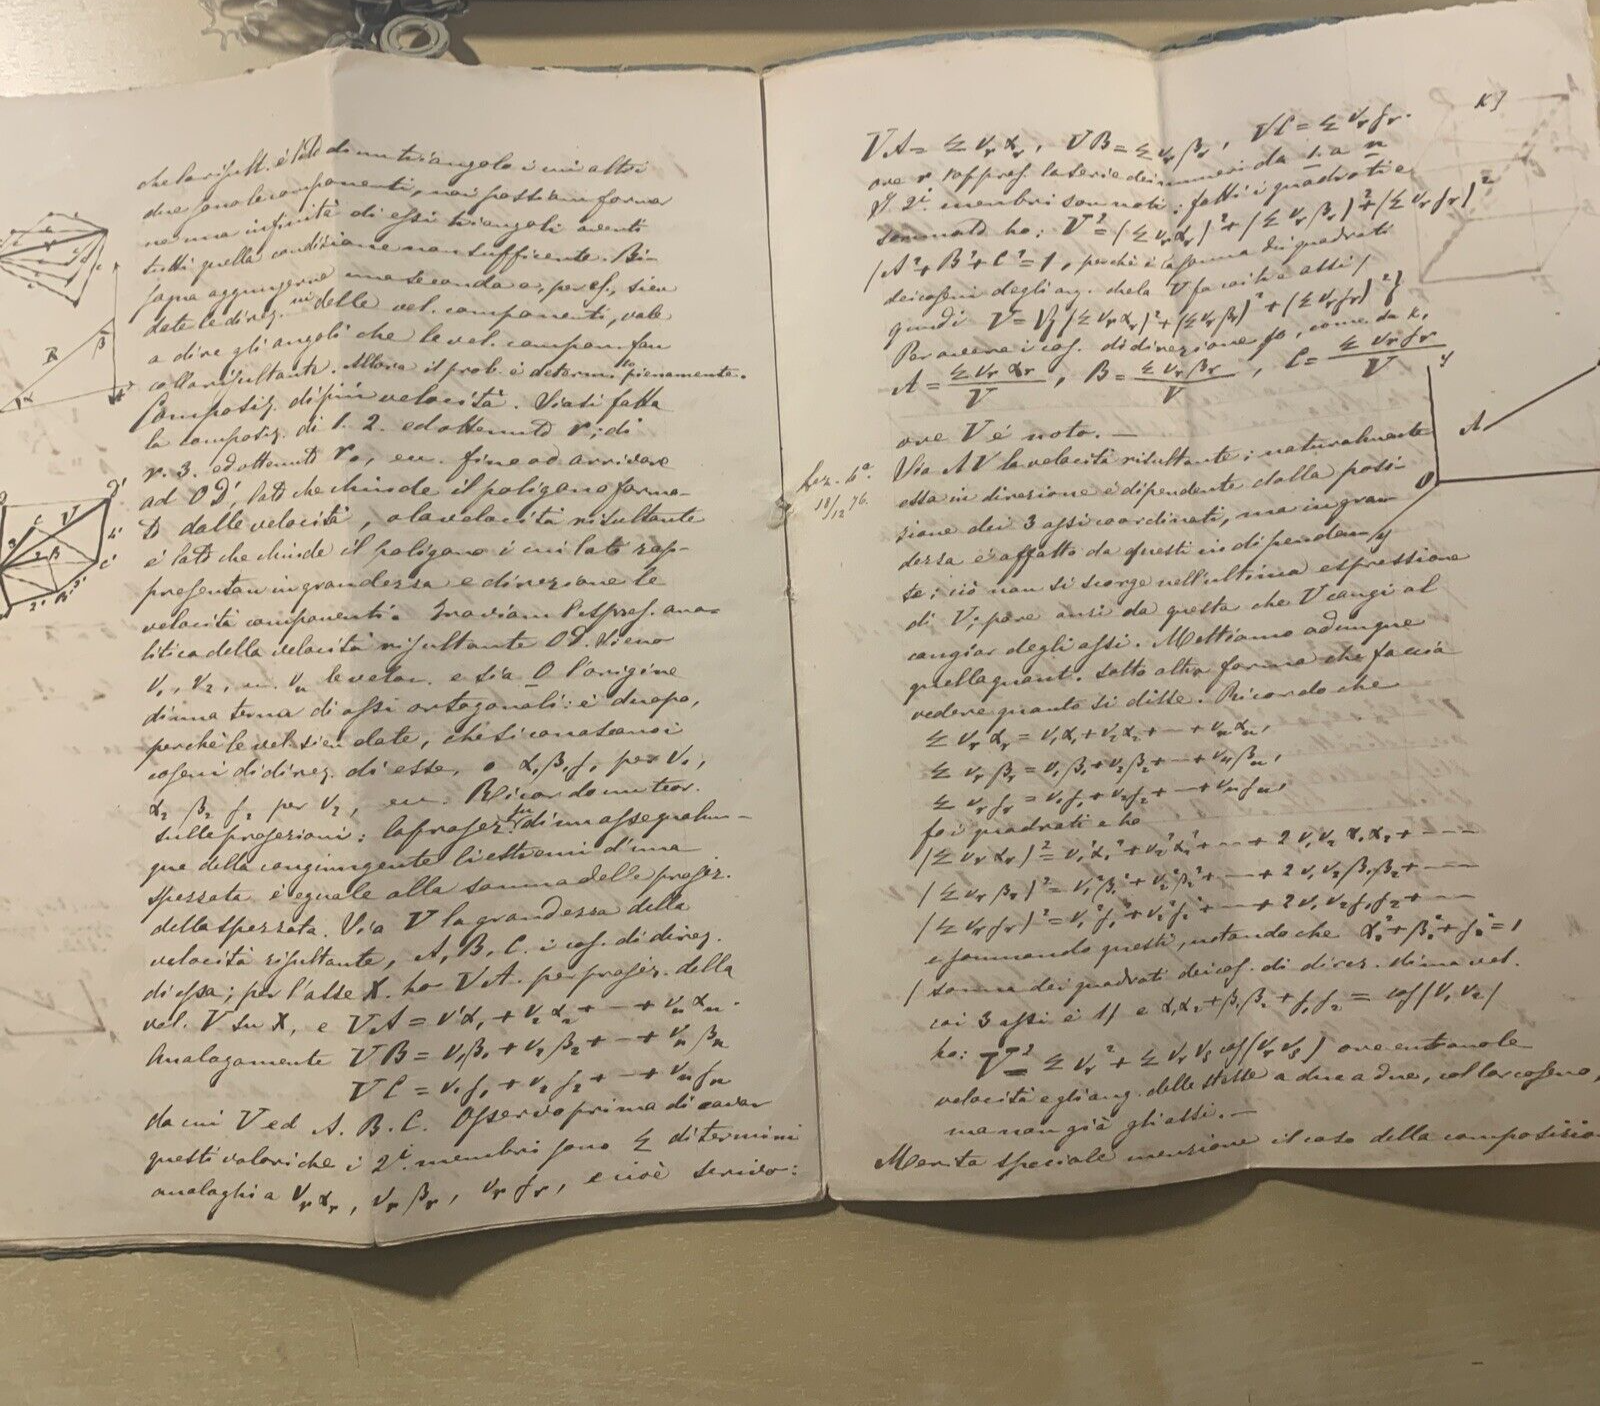 che la risult. è lato di un triangolo i cui altri
due sono le componenti, noi possiam forma
re una infinità di essi triangoli aventi
tutti quella condizione non sufficente. Bi-
sogna aggiungerne una seconda e, per es., sien
date le direz.ni delle vel. componenti, vale
a dire gli angoli che le vel. compon. fan
colla risultante. Allora il prob. è determ.to pienamente.
Composiz. di più velocità. Siasi fatta
la composiz. di 1. 2. ed ottenuto r; di
r. 3. ed ottenuto r₀, ecc. fino ad arrivare
ad OD', lato che chiude il poligono forma-
to dalle velocità, o la velocità risultante
è lato che chiude il poligono i cui lati rap-
presentan in grandezza e direzione le
velocità componenti. Troviam l'espres. ana-
litica della velocità risultante OD. Sieno
v₁, v₂, ... vₙ le veloc. e sia O l'origine
di una terna di assi ortogonali: è duopo,
perchè le vel. sien date, che si conoscano i
coseni di direz. di esse, o α₁ β₁ ƒ₁ per v₁,
α₂ β₂ ƒ₂ per v₂, ecc. Ricordo un teor.
sulle proiezioni: la proiez. su di un asse qualun-
que della congiungente li estremi d'una
spezzata è eguale alla somma delle proiez.
della spezzata. Sia V la grandezza della
velocità risultante, A, B, C. i cos. di direz.
di essa; per l'asse X. ho VA. per proiez. della
vel. V su X, e VA = v'α₁ + v₂ α₂ + --- + vₙ αₙ.
Analogamente VB = v₁β₁ + v₂ β₂ + --- + vₙ βₙ
VC = v₁ ƒ₁ + v₂ ƒ₂ + --- + vₙ ƒₙ
da cui V ed A. B. C. Osservo prima di cavar
questi valori che i 2.i membri sono Σ di termini
analoghi a vᵣ αᵣ, vᵣ βᵣ, vᵣ ƒᵣ, e cioè scrivo:
R
α
β
VA = Σ vᵣ αᵣ, VB = Σ vᵣ βᵣ, VC = Σ vᵣ ƒᵣ.
ove r rappres. la serie dei numeri da 1 a n
2.i membri son noti: fatti i quadrati e
sommato ho: V² = (Σ vᵣαᵣ)² + (Σ vᵣ βᵣ)² + (Σ vᵣ ƒᵣ)²
(A² + B² + C² = 1, perchè è la somma dei quadrati
dei coseni degli ang. che la V fa coi tre assi)
quindi V = √{(Σ vᵣ αᵣ)² + (Σ vᵣ βᵣ)² + (Σ vᵣ ƒᵣ)²}
Per avere i cos. di direzione fo, come da K,
A = Σ vᵣ αᵣ / V, B = Σ vᵣ βᵣ / V, C = Σ vᵣ ƒᵣ / V
ove V è noto. —
Lez. 6ª.
18/12 76.
Sia AV la velocità risultante; naturalmente
essa in direzione è dipendente dalla posi-
zione dei 3 assi coordinati, ma in gran
dezza è affatto da questi indipenden
te; ciò non si scorge nell'ultima espressione
di V; pare anzi da questa che V cangi al
cangiar degli assi. Mettiamo adunque
quella quant. sotto altra forma che faccia
vedere quanto si disse. Ricordo che
Σ vᵣ αᵣ = v₁ α₁ + v₂ α₂ + --- + vₙ αₙ,
Σ vᵣ βᵣ = v₁ β₁ + v₂ β₂ + --- + vₙ βₙ,
Σ vᵣ ƒᵣ = v₁ ƒ₁ + v₂ ƒ₂ + --- + vₙ ƒₙ,
fo i quadrati e ho
(Σ vᵣ αᵣ)² = v₁² α₁² + v₂² α₂² + --- + 2 v₁ v₂ α₁ α₂ + ----
(Σ vᵣ βᵣ)² = v₁² β₁² + v₂² β₂² + --- + 2 v₁ v₂ β₁ β₂ + ----
(Σ vᵣ ƒᵣ)² = v₁² ƒ₁² + v₂² ƒ₂² + --- + 2 v₁ v₂ ƒ₁ ƒ₂ + ----
e sommando questi, notando che α₁² + β₁² + ƒ₁² = 1
(somma dei quadrati dei cos. di direz. di una vel.
coi 3 assi è 1) e α₁ α₂ + β₁ β₂ + ƒ₁ ƒ₂ = cos (v₁ v₂)
ho: V² = Σ vᵣ² + Σ vᵣ vₛ cos (vᵣ vₛ) ove entran le
velocità e gli ang. delle stesse a due a due, col lor coseno,
ma non già gli assi. —
Merita speciale menzione il caso della composizio
A
O
y